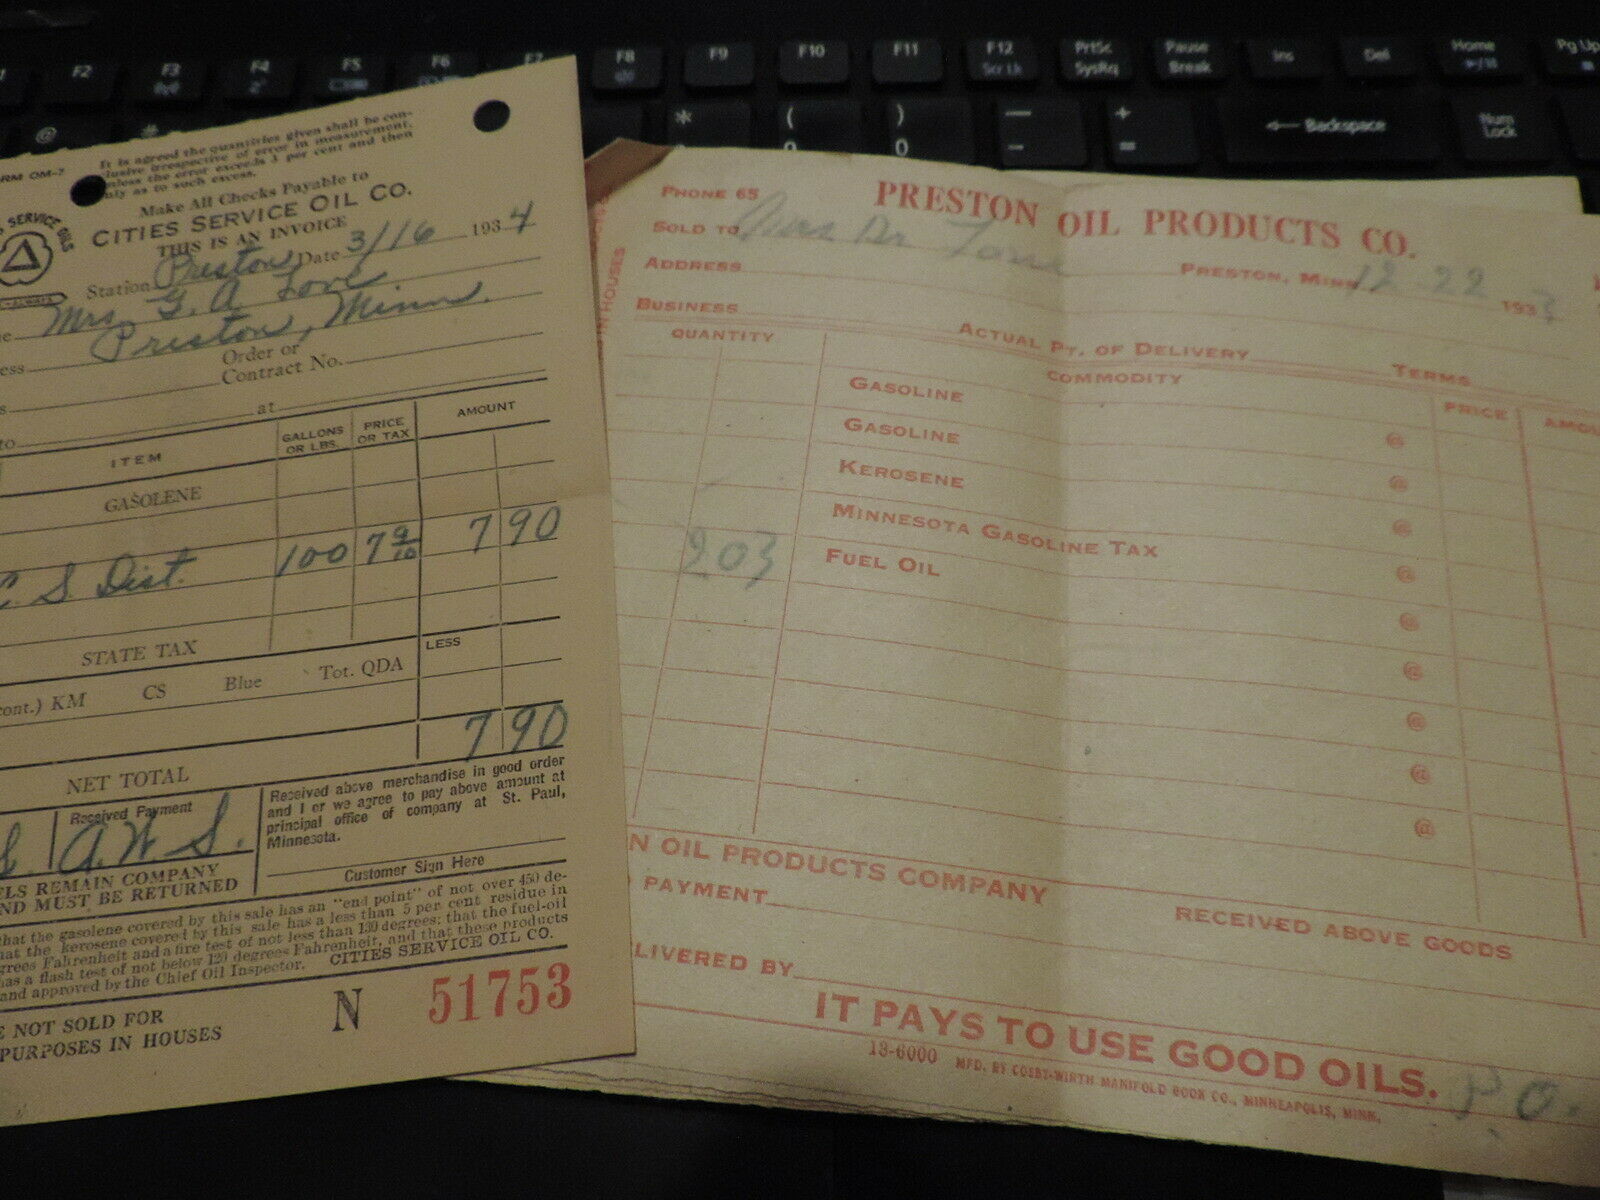 F2 F3 F4 F5 F6 F7 F8 F9 F10 F11 F12 PrtSc Pause Ins Del Home Pg Up
Scr Lk SysRq Break
@ # * ( ) — +
9 0 - = Backspace Num Lock
RM OM-7
It is agreed the quantities given shall be con-
clusive irrespective of error in measurement,
unless the error exceeds 1 per cent and then
only as to such excess.
Make All Checks Payable to
CITIES SERVICE OIL CO.
SERVICE OILS
THIS IS AN INVOICE
Station Preston Date 3/16 1934
Mrs. G. A. Love
Preston, Minn.
ess
Order or
Contract No.
at
to
ITEM GALLONS OR LBS. PRICE OR TAX AMOUNT
GASOLENE
C. S. Dist. 100 7 9/10 7 90
STATE TAX LESS
cont.) KM CS Blue Tot. QDA
NET TOTAL 7 90
Received Payment
A. W. S.
Received above merchandise in good order
and I or we agree to pay above amount at
principal office of company at St. Paul,
Minnesota.
Customer Sign Here
ELS REMAIN COMPANY
ND MUST BE RETURNED
that the gasolene covered by this sale has an "end point" of not over 450 de-
that the kerosene covered by this sale has a less than 5 per cent residue in
grees Fahrenheit and a fire test of not less than 130 degrees; that the fuel-oil
has a flash test of not below 120 degrees Fahrenheit, and that these products
and approved by the Chief Oil Inspector. CITIES SERVICE OIL CO.
E NOT SOLD FOR
PURPOSES IN HOUSES
N 51753
IN HOUSES
PHONE 65 PRESTON OIL PRODUCTS CO.
SOLD TO
ADDRESS PRESTON, MINN. 12 22 1933
BUSINESS ACTUAL PT. OF DELIVERY TERMS
QUANTITY COMMODITY PRICE AMOU
GASOLINE @
GASOLINE @
KEROSENE @
MINNESOTA GASOLINE TAX @
203 FUEL OIL @
@
@
@
@
N OIL PRODUCTS COMPANY
PAYMENT RECEIVED ABOVE GOODS
LIVERED BY
IT PAYS TO USE GOOD OILS.
13-6000 MFD. BY COSBY-WIRTH MANIFOLD BOOK CO., MINNEAPOLIS, MINN.
P. O.